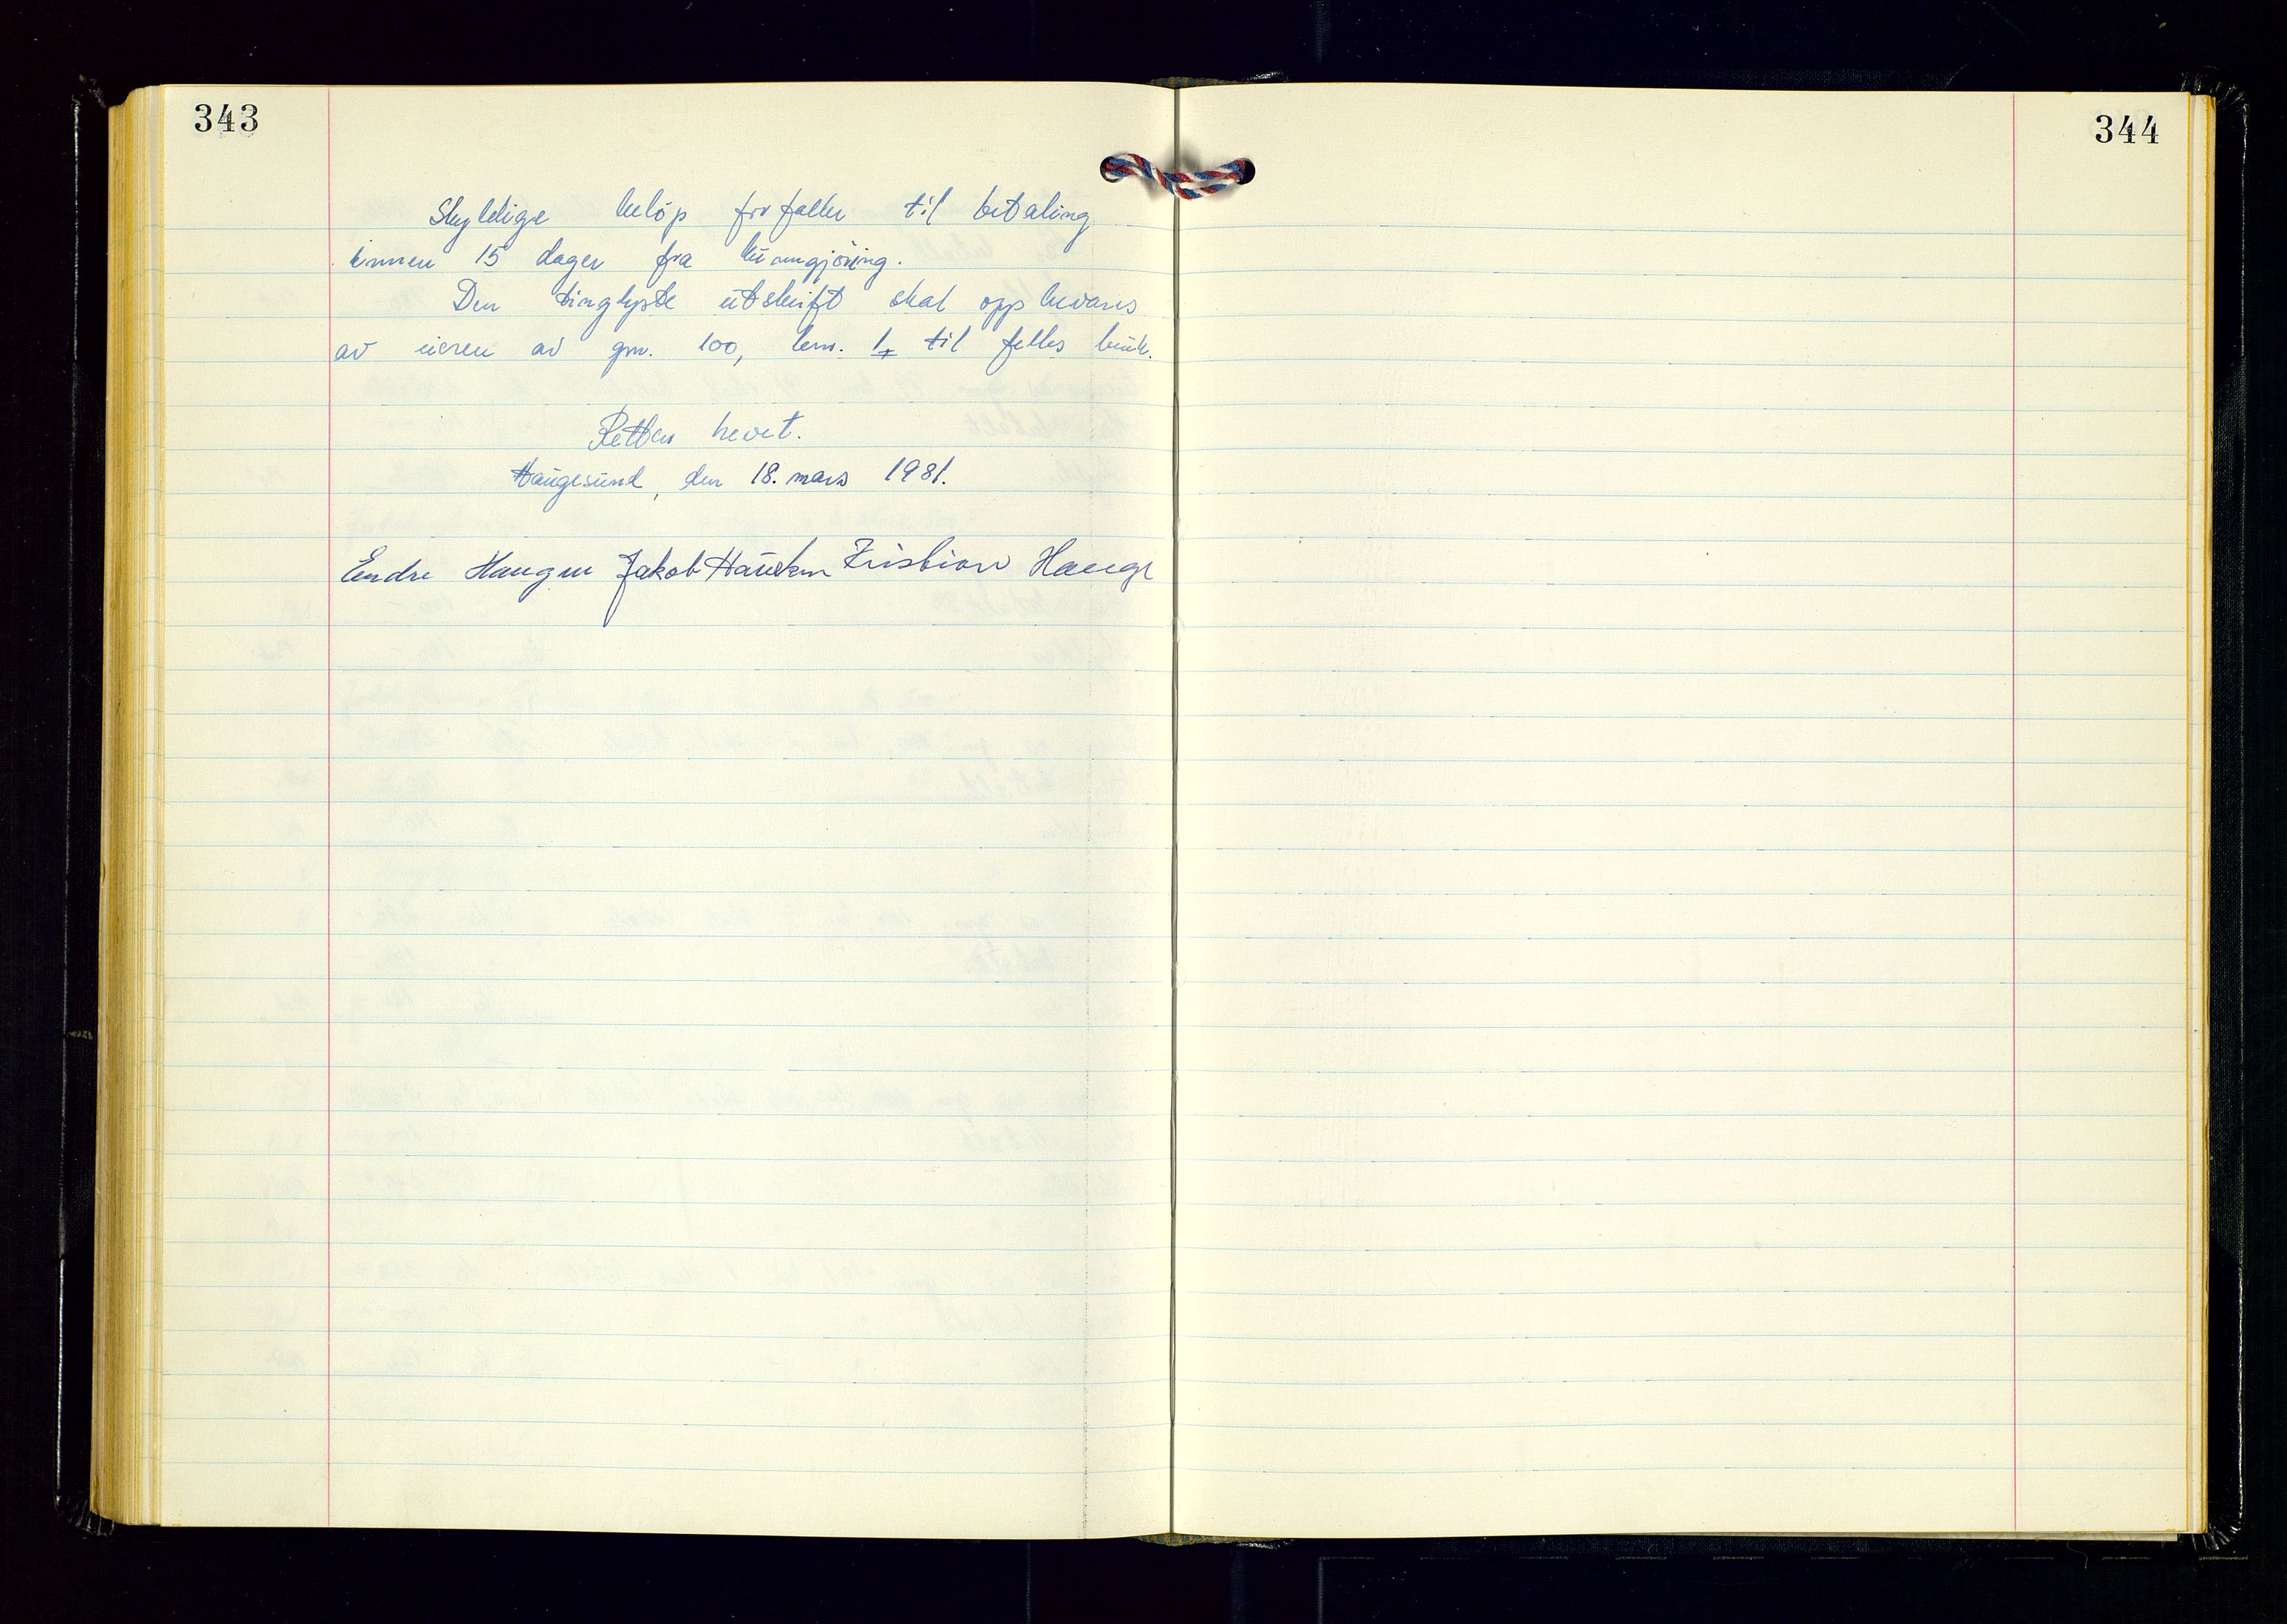 343
344
Skyldige beløp forfaller til betaling
innen 15 dager fra kunngjøring.
Den tinglyste utskrift skal oppbevares
av eieren av gnr. 100, bnr. 1 til felles bruk.
Retten hevet.
Haugesund, den 18. mars 1981.
Endre Haugen Jakob Kristian Hauge